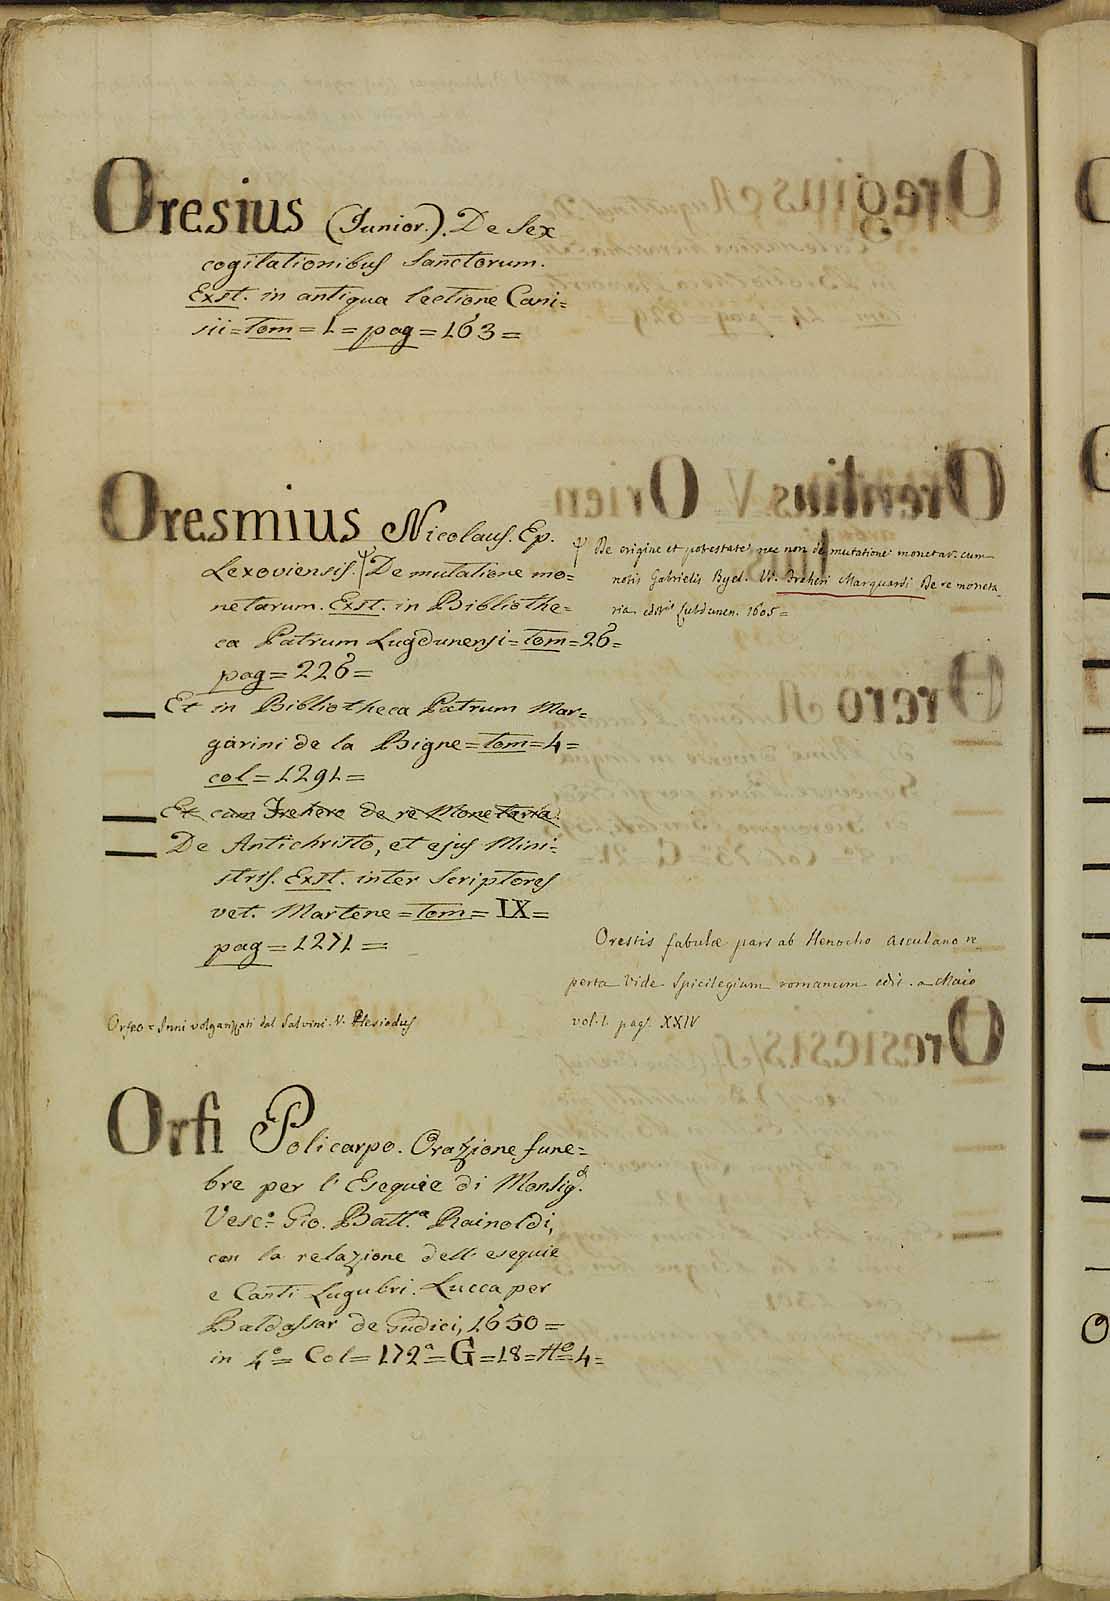 Oresius (Junior.). De Sex
cogitationibus Sanctorum.
Exst. in antiqua lectione Cani=
sii = Tom = 1 = pag = 163 =
Oresmius Nicolaus. Ep.
Lexoviensis. De mutatione mo=
netarum. Exst. in Bibliothe=
ca Patrum Lugdunensi = tom = 26 =
pag = 226 =
Et in Bibliotheca Patrum Mar=
garini de la Bigne = tom = 4 =
col = 1291 =
Et cum Frehero de re Monetaria
De Antichristo, et ejus Mini=
stris. Exst. inter Scriptores
vet. Martene = Tom = IX =
pag = 1271 =
Orfeo = Inni volgarizzati dal Salvini. V. Hesiodus
Orfi Policarpo. Orazione fune=
bre per l'Esequie di Monsig.
Vesc.o Gio. Batt.a Rainoldi,
con la relazione dell'esequie
e Canti Lugubri. Lucca per
Baldassar de Gudici, 1650 =
in 4.o = Col = 172.a = G = 18 = N.o = 4 =
De origine et potestate nec non de mutatione monetar. cum
notis Gabrielis Byel. V. Freheri Marquardi De re moneta
ria edit. Lubdunen. 1605 =
Orestis fabulæ pars ab Henocho Asculano re
perta Vide Spicilegium romanum edit. a Maio
vol. 1. pag. XXIV